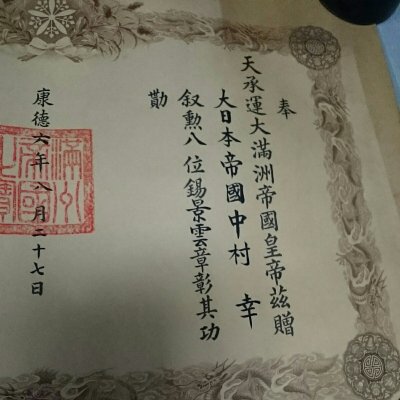 奉
天承運大滿洲帝國皇帝茲贈
大日本帝國中村 幸
叙勲八位錫景雲章彰其功
勤
康德六年八月二十七日
滿洲帝國之寶